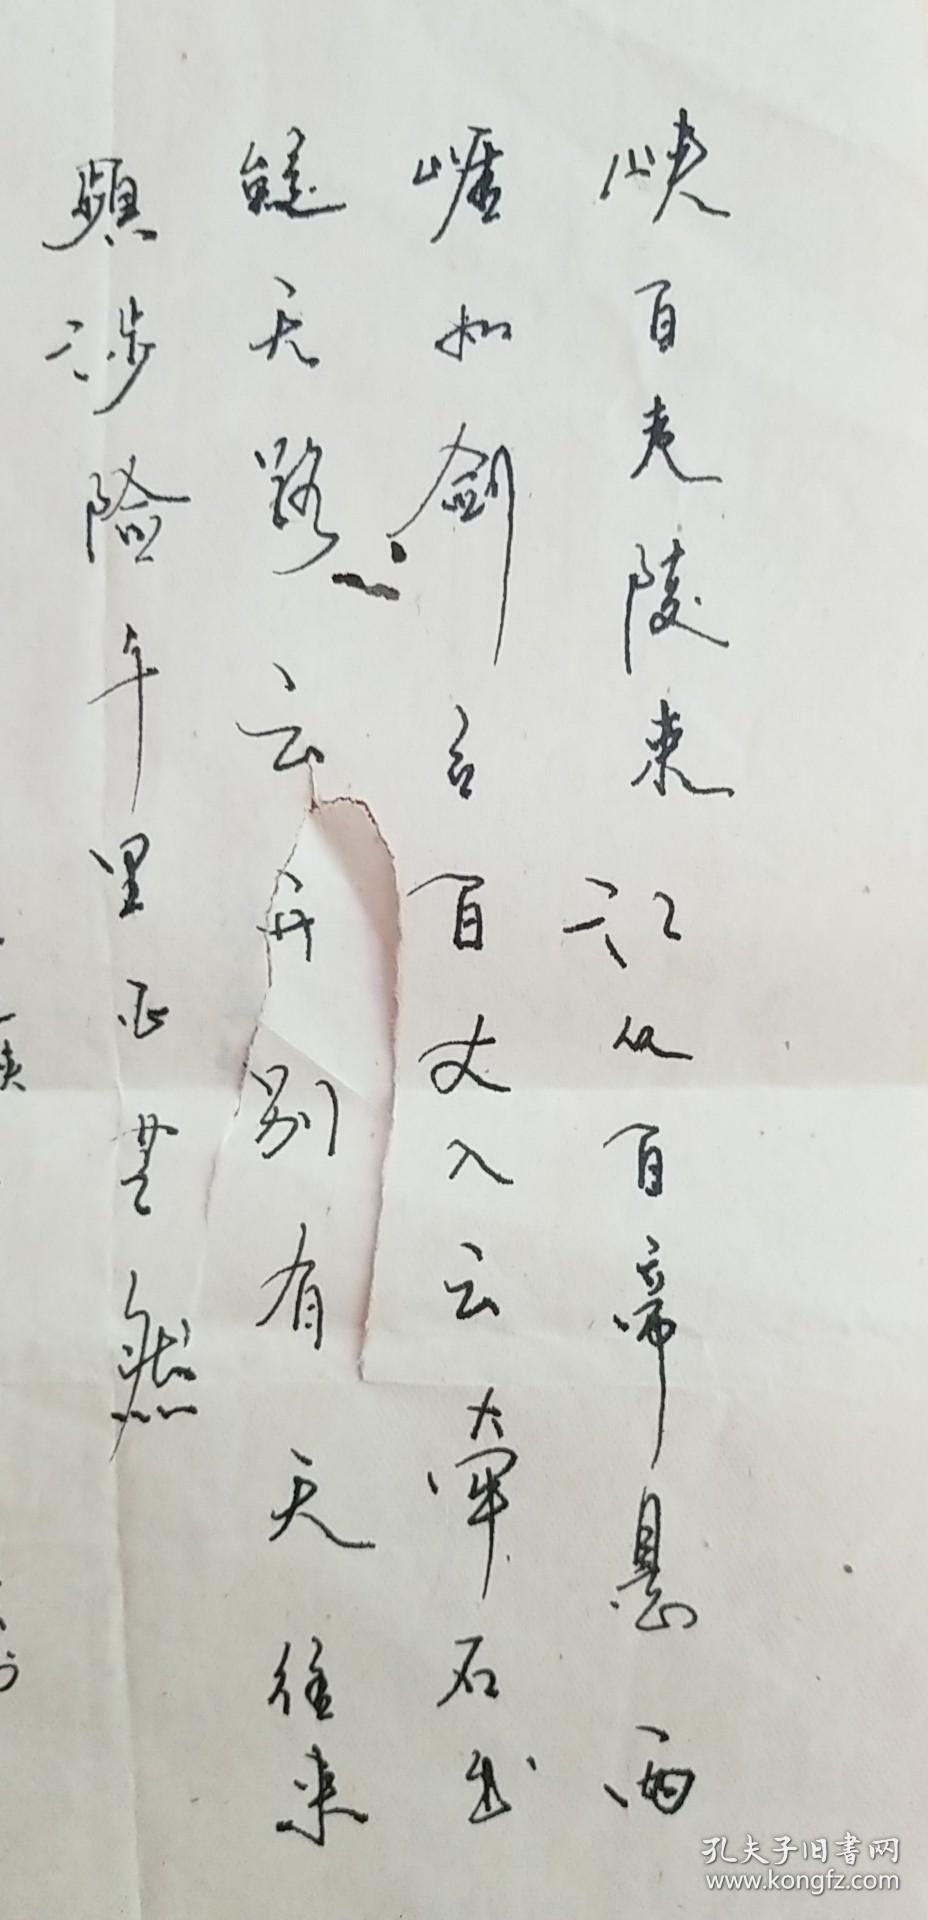 峡自夷陵来江从百帝悬两
崖如剑立百丈入云牵石出
疑无路云开别有天往来
频涉险千里正茫然
孔夫子旧书网
www.kongfz.com